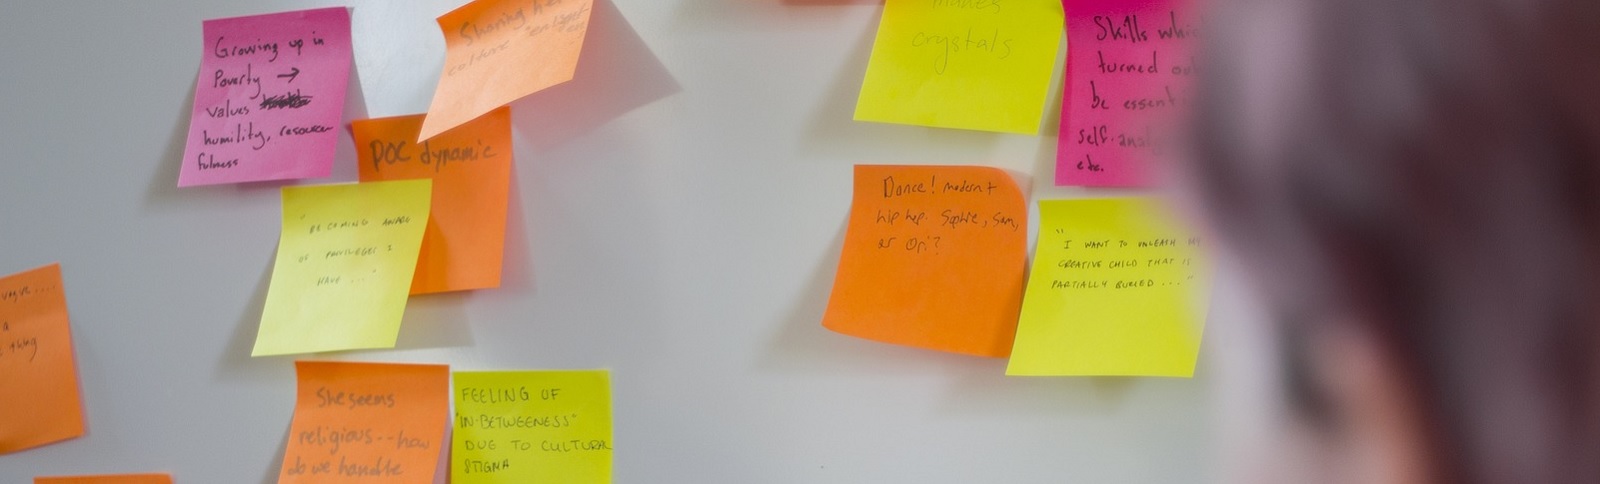 Growing up in
Poverty →
values
humility, resource
fulness
Sharing her
culture
POC dynamic
"BECOMING AWARE
OF PRIVILEGES I
HAVE ..."
a
thing
She seems
religious -- how
do we handle
FEELING OF
"IN-BETWEENESS"
DUE TO CULTURAL
STIGMA
makes
crystals
Skills whic
turned ou
be essenti
self-anal
etc.
Dance! modern +
hip hop. Sophie, Sam,
or Ori?
"I WANT TO UNLEASH MY
CREATIVE CHILD THAT IS
PARTIALLY BURIED ..."